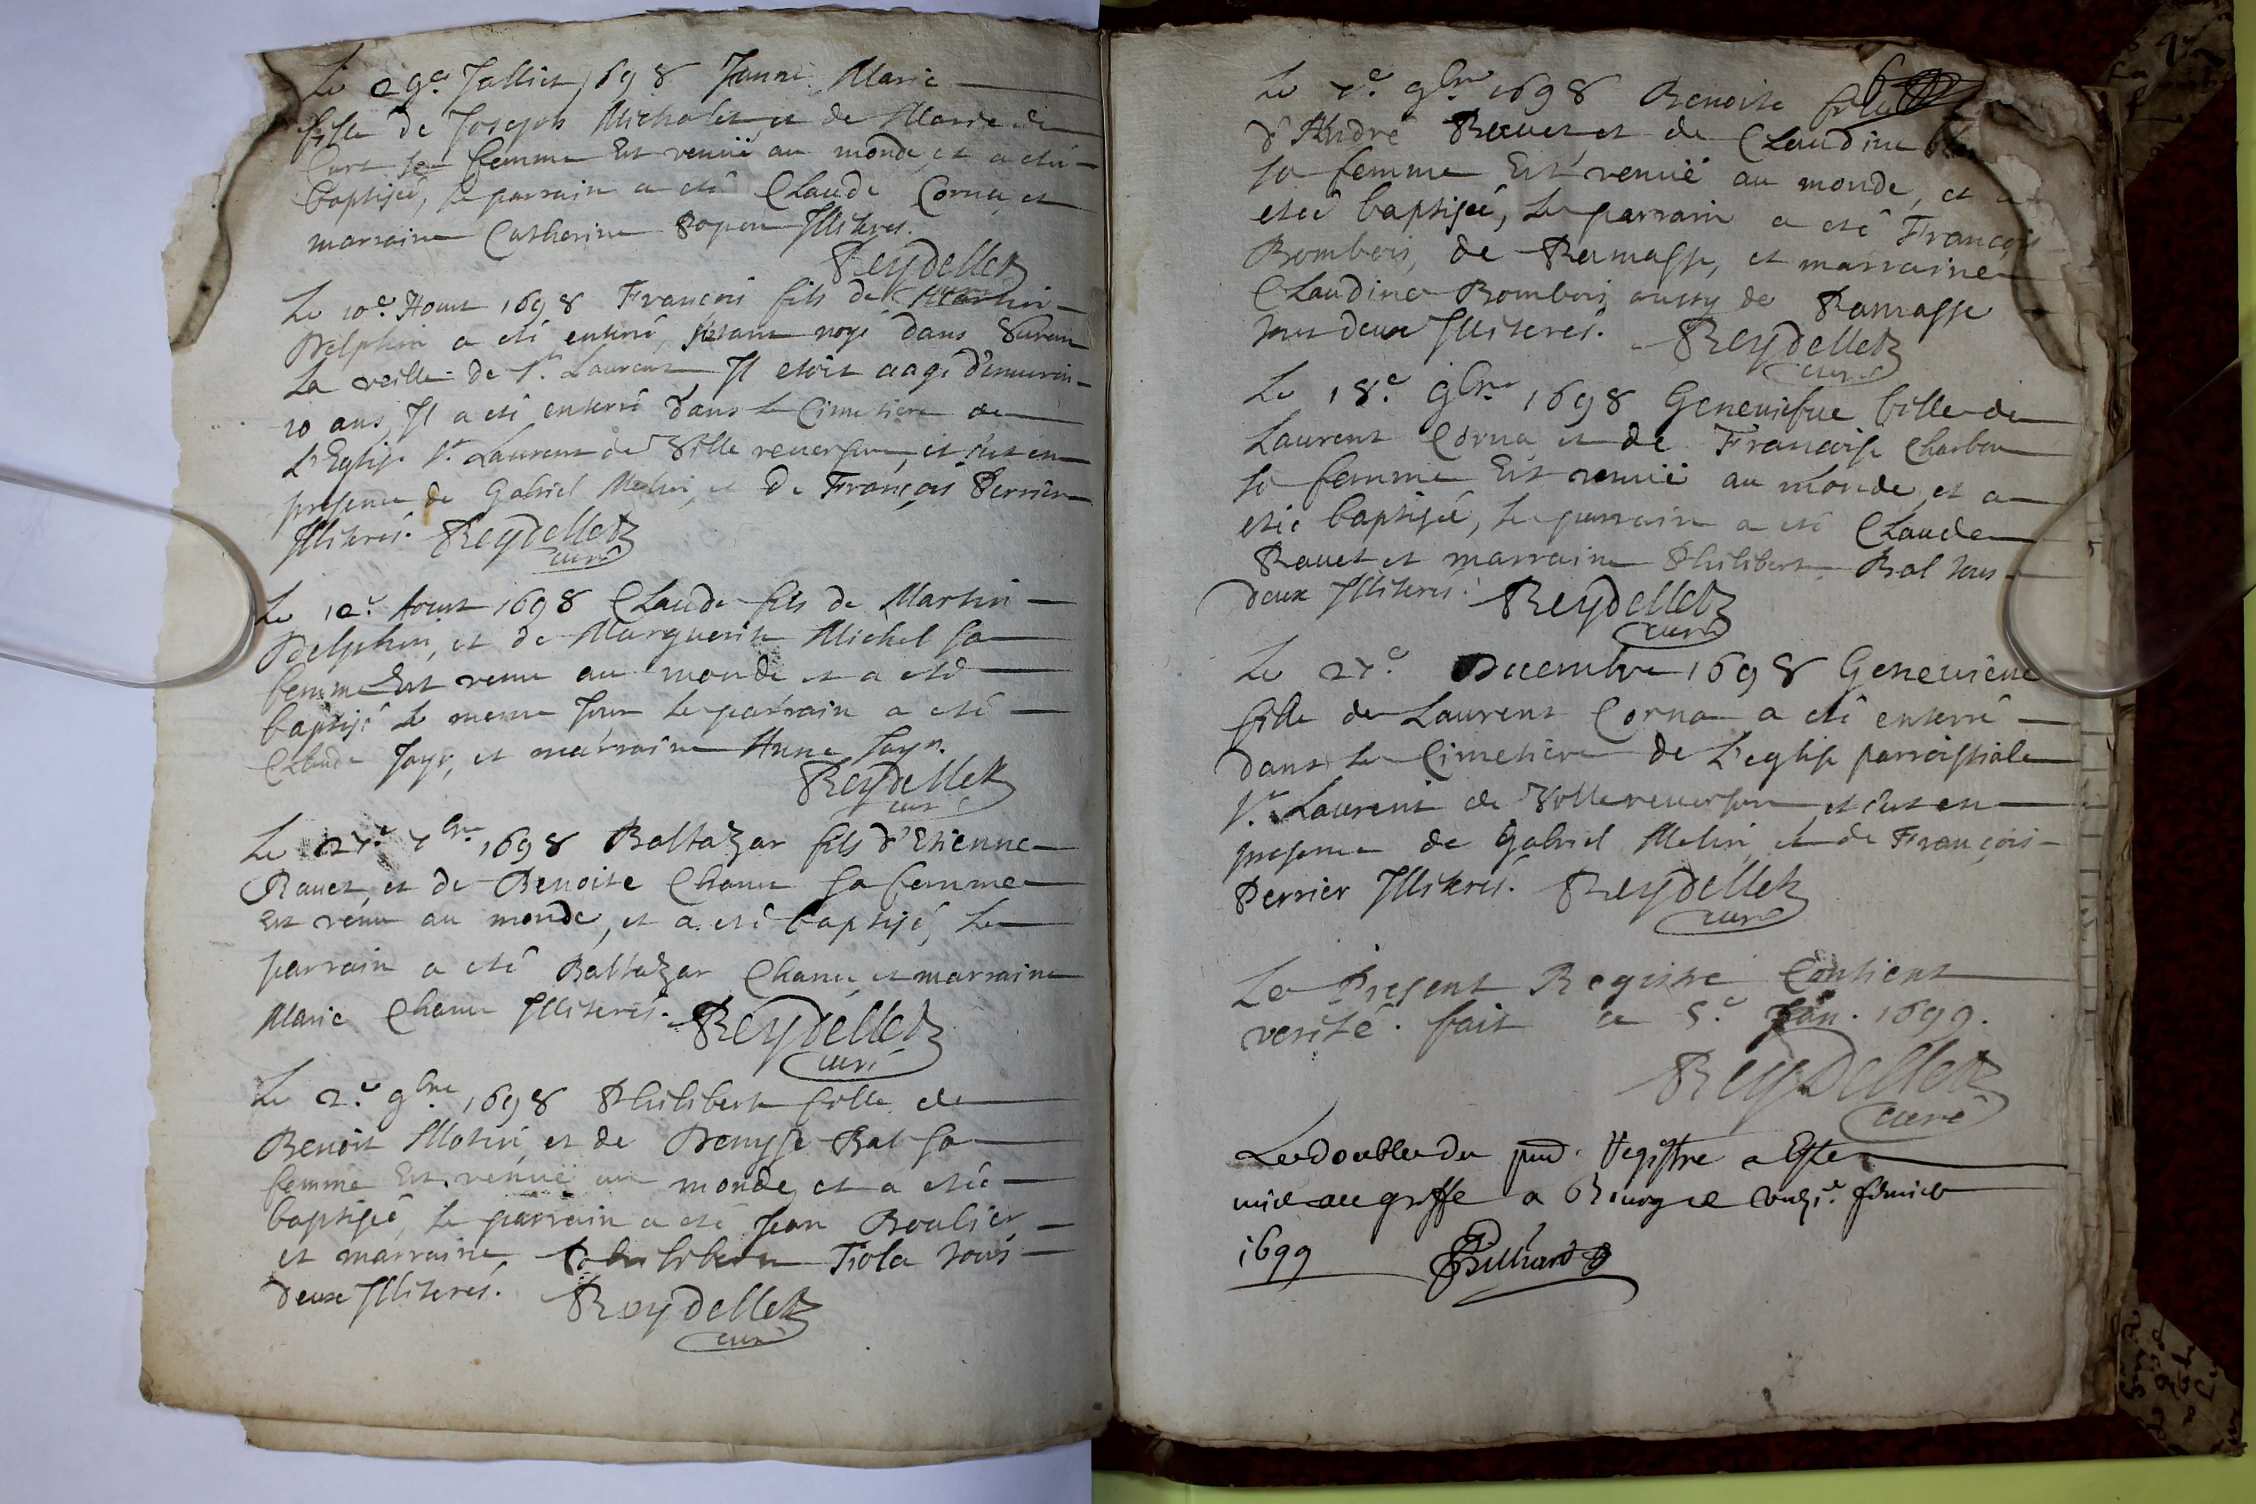 Le 29e. Jallict 1698 Janne Marie
fille de Joseph Micholet, et de Marie de
Curt sa femme Est venuë au monde, et a eté
baptiseé, le parrain a eté Claude Corna, et
marraine Catherine Illiterés.
Reydellet
curé
Le 10e. Aout 1698 François fils de Martin
Delphin a eté enterré, s'etant noyé dans Suran
La veille de St. Laurent, Il etoit aagé d'environ
10 ans, Il a eté enterré dans le Cimetiere de
L'Eglise St. Laurent de Villereversure, et c'est en
presence de Gabriel Melin, et De François Perrier
Illiterés. Reydellet
curé
Le 12e. Aout 1698 Claude fils de Martin
Delphin, et de Marguerite Michel sa
femme Est venu au monde et a eté
baptisé le meme Jour le parrain a eté
Claude Jayr, et marraine Anne Jayr.
Reydellet
curé
Le 27e. 7bre 1698 Baltazar fils d'Etienne
Ravet, et de Benoite Chanu sa femme
Est venu au monde, et a eté baptisé, Le
parrain a eté Baltazar Chanu, et marraine
Marie Chanu Illiterés. Reydellet
curé
Le 2e. 9bre 1698 Philiberte fille de
Benoit Motin, et de Denyse Bal sa
femme Est venuë au monde, et a eteé
baptiseé, le parrain a eté Jean Boulier
et marraine Philiberte Tiola tous
deux Illiterés. Reydellet
curé
6
Le 7e. 9bre 1698 Benoite fille
d'André Ravet, et de Claudine
sa femme Est venuë au monde, et a
eteé baptiseé, Le parrain a eté François
Bombois, de Ramasse, et marraine
Claudine Bombois aussy de Ramasse
tous deux Illiterés. Reydellet
curé
Le 18e. 9bre 1698 Geneviefve fille de
Laurent Corna et de Françoise Charbon
sa femme Est venuë au monde, et a
eteé baptiseé, Le parrain a eté Claude
Ravet et marraine Philiberte Bal tous
deux Illiterés. Reydellet
curé
Le 27e. Decembre 1698 Genevieve
fille de Laurent Corna a eté enterré
dans le Cimetiere de L'eglise parroissiale
St. Laurent de Villereversure, et c'est en
presence de Gabriel Melin, et de François
Perrier Illiterés. Reydellet
curé
Le Present Registre Contient
verité. fait ce 5e. Jan. 1699.
Reydellet
curé
Le double du pnt. Registre a Este
mis au greffe a Bourg le fevrier
1699 Billiard